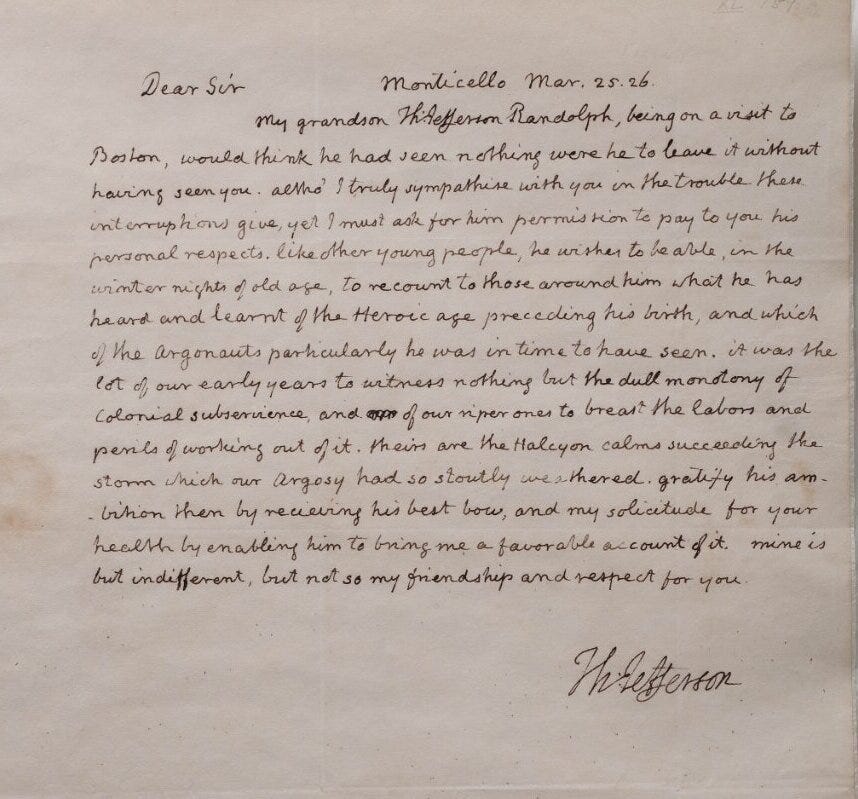 Dear Sir Monticello Mar. 25. 26.
My grandson Th: Jefferson Randolph, being on a visit to
Boston, would think he had seen nothing were he to leave it without
having seen you. altho' I truly sympathise with you in the trouble these
interruptions give, yet I must ask for him permission to pay to you his
personal respects. like other young people, he wishes to be able, in the
winter nights of old age, to recount to those around him what he has
heard and learnt of the Heroic age preceding his birth, and which
of the Argonauts particularly he was in time to have seen. it was the
lot of our early years to witness nothing but the dull monotony of
Colonial subservience, and of our riper ones to breast the labors and
perils of working out of it. theirs are the Halcyon calms succeeding the
storm which our Argosy had so stoutly weathered. gratify his am-
-bition then by recieving his best bow, and my solicitude for your
health by enabling him to bring me a favorable account of it. mine is
but indifferent, but not so my friendship and respect for you.
Th: Jefferson